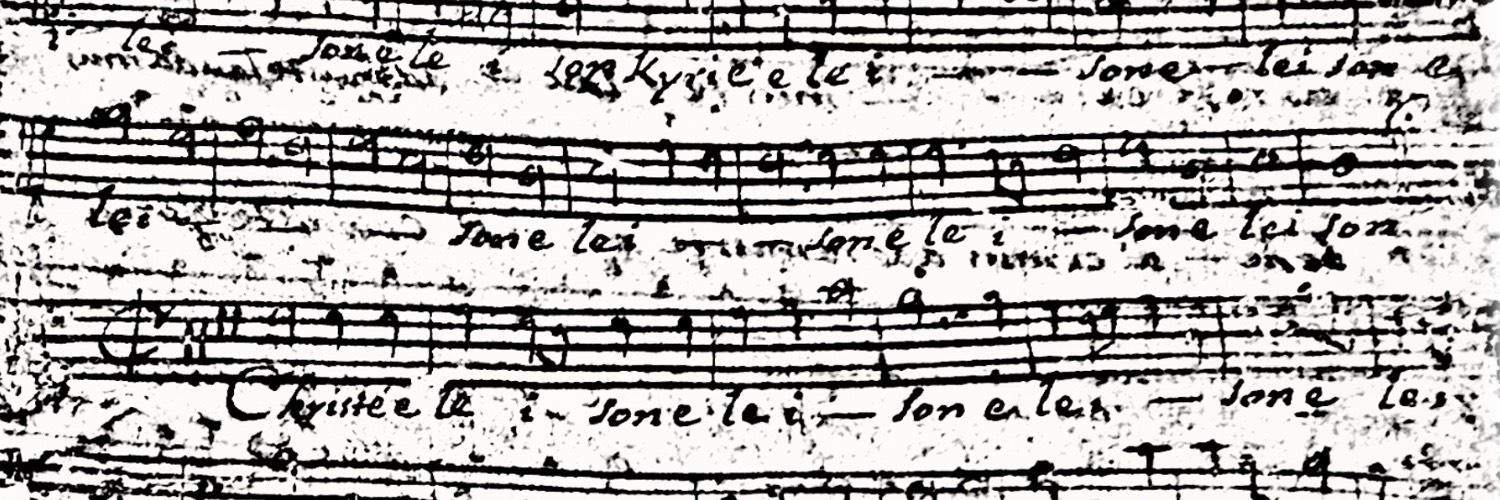 les sone le i son Kyrie e le i — sone — lei son e
lei — sone lei — sone le i — sone lei son
Christe e le i - sone le i — son e lei — sone lei